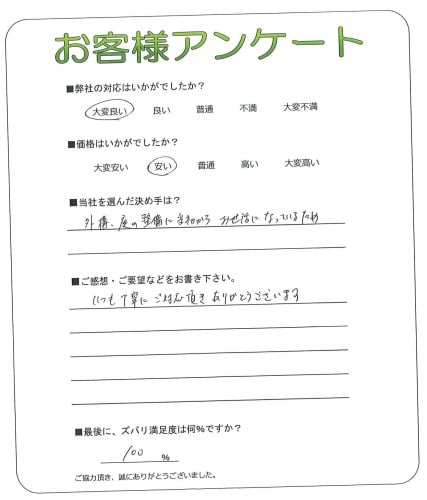 お客様アンケート
■弊社の対応はいかがでしたか？
大変良い 良い 普通 不満 大変不満
■価格はいかがでしたか？
大変安い 安い 普通 高い 大変高い
■当社を選んだ決め手は？
外構、庭の整備に当初から お世話になっているため
■ご感想・ご要望などをお書き下さい。
いつも丁寧にご対応頂きありがとうございます
■最後に、ズバリ満足度は何％ですか？
100 ％
ご協力頂き、誠にありがとうございました。